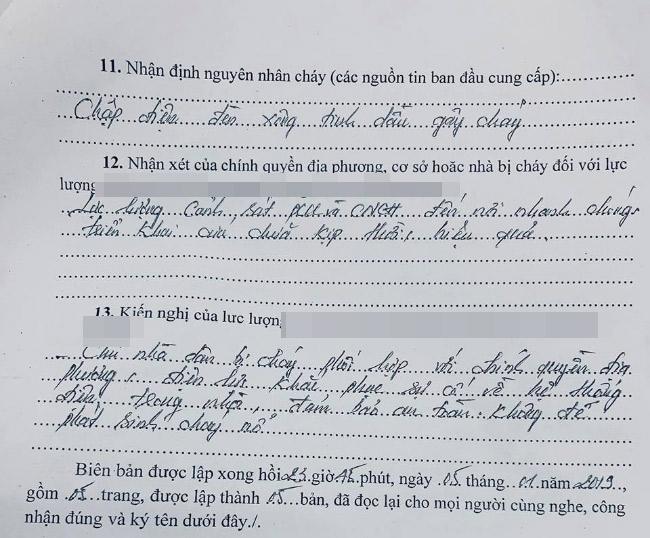 11. Nhận định nguyên nhân cháy (các nguồn tin ban đầu cung cấp):
Chập điện đèn xông tinh dầu gây cháy
12. Nhận xét của chính quyền địa phương, cơ sở hoặc nhà bị cháy đối với lực
lượng
Lực lượng Cảnh sát PCCC và CNCH đến nơi nhanh chóng
triển khai cứu chữa kịp thời, hiệu quả.
13. Kiến nghị của lực lượng
Chủ nhà dân bị cháy phối hợp với chính quyền địa
phương, điện lực khắc phục sự cố về hệ thống
điện trong nhà, đảm bảo an toàn, không để
phát sinh cháy nổ.
Biên bản được lập xong hồi 23 giờ 45 phút, ngày 05 tháng 01 năm 2019,
gồm 05 trang, được lập thành 05 bản, đã đọc lại cho mọi người cùng nghe, công
nhận đúng và ký tên dưới đây./.